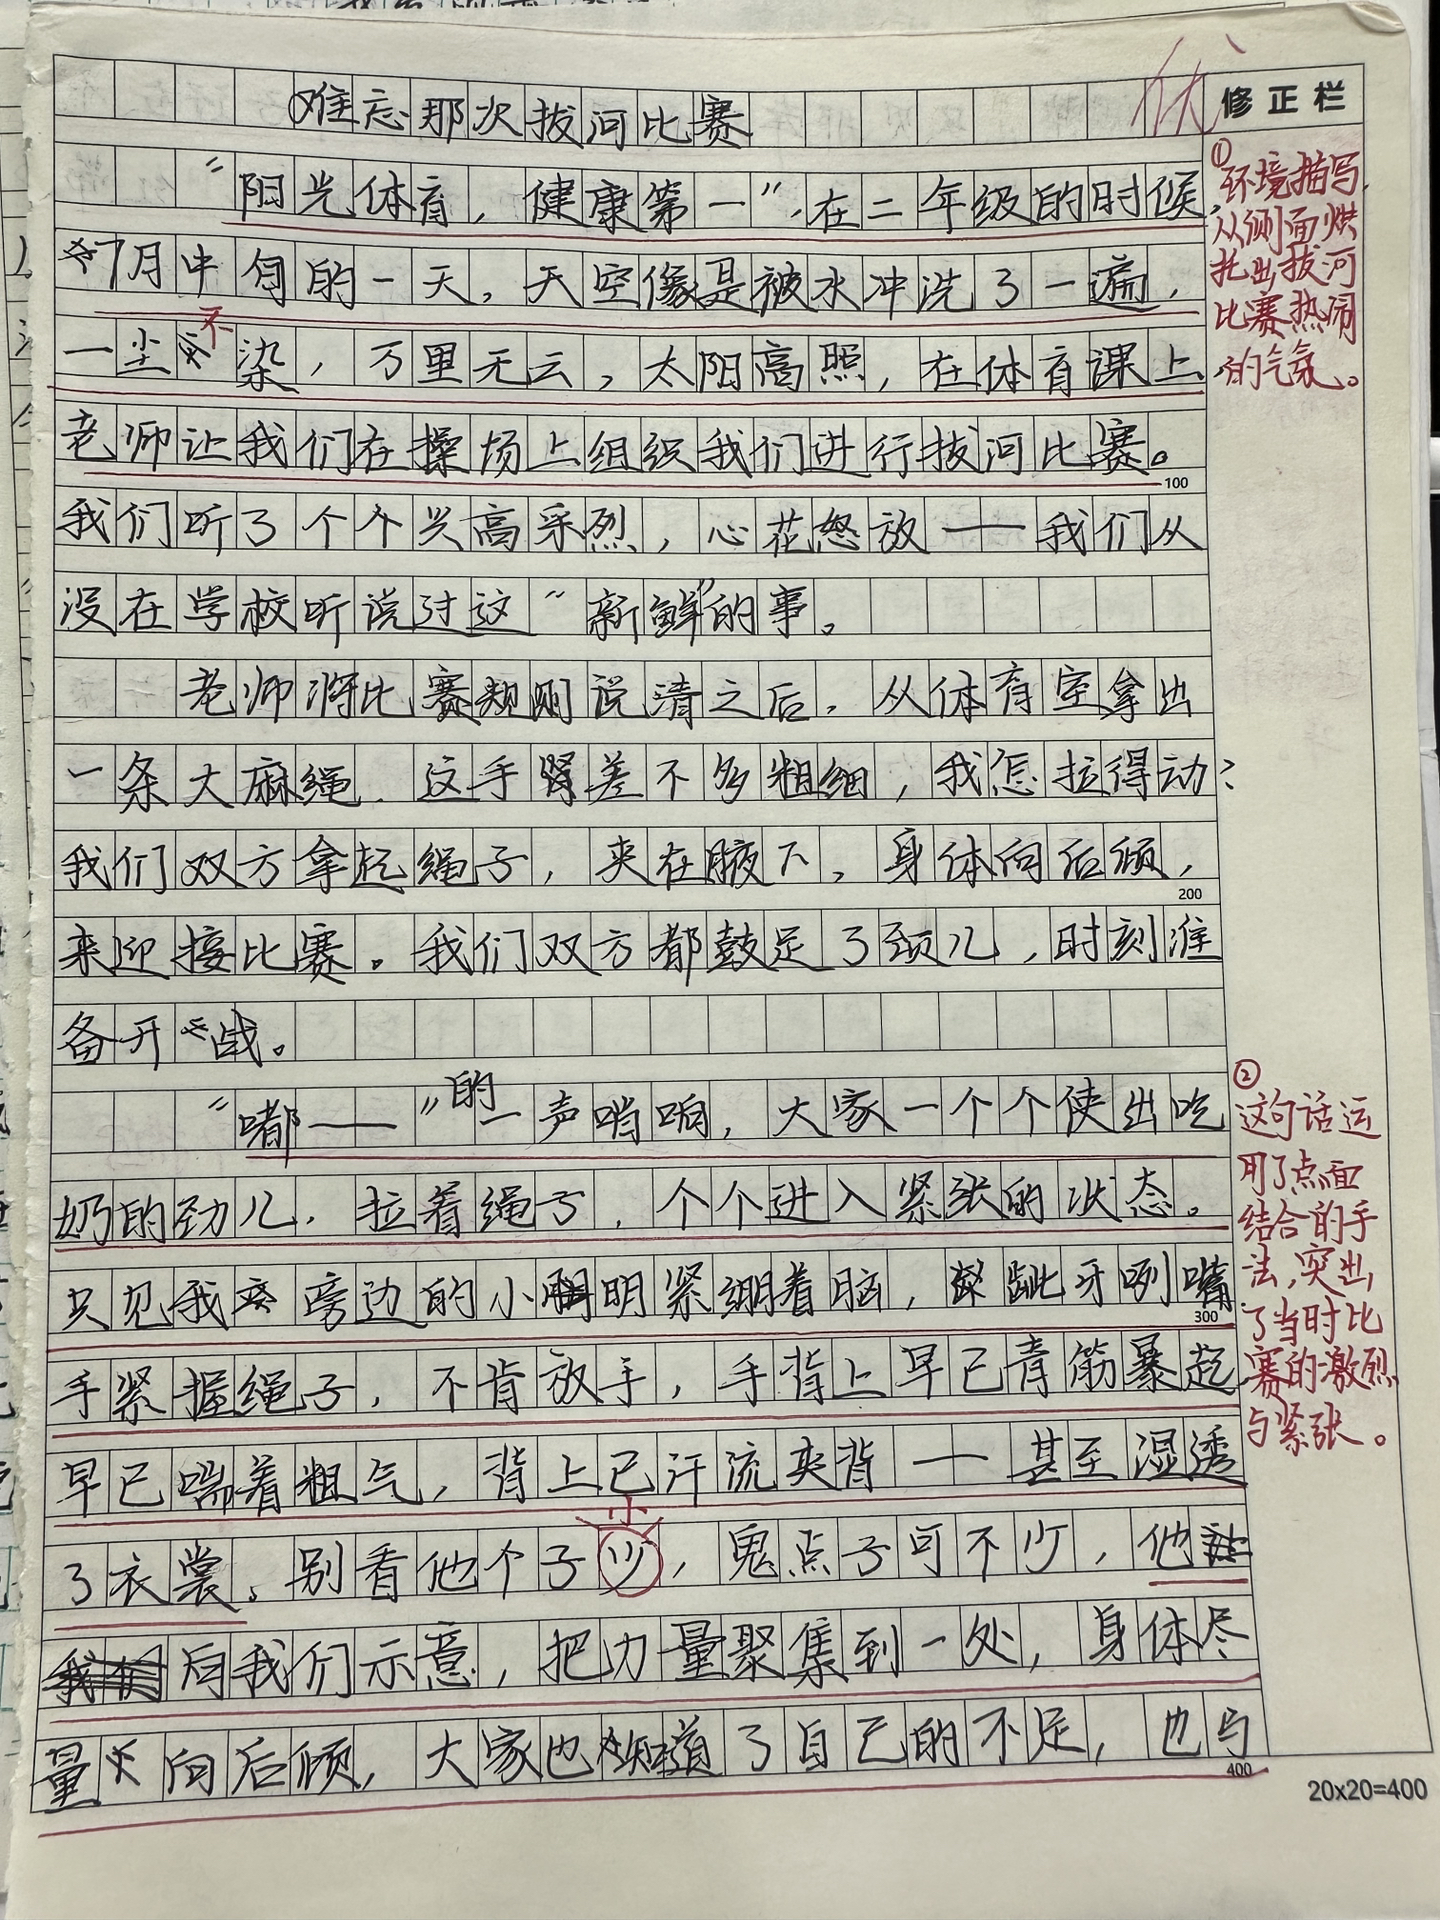 难忘那次拔河比赛
优
修正栏
“阳光体育，健康第一”，在二年级的时候，
7月中旬的一天，天空像是被水冲洗了一遍，
一尘不染，万里无云，太阳高照，在体育课上
老师让我们在操场上组织我们进行拔河比赛。
100
我们听了个个兴高采烈，心花怒放——我们从
没在学校听说过这“新鲜”的事。
老师将比赛规则说清之后，从体育室拿出
一条大麻绳，这手臂差不多粗细，我怎拉得动？
我们双方拿起绳子，夹在腋下，身体向后倾，
200
来迎接比赛。我们双方都鼓足了劲儿，时刻准
备开战。
“嘟——”的一声哨响，大家一个个使出吃
奶的劲儿，拉着绳子，个个进入紧张的状态。
只见我旁边的小明紧绷着脑，龇牙咧嘴
300
手紧握绳子，不肯放手，手背上早已青筋暴起
早已喘着粗气，背上已汗流夹背——甚至湿透
了衣裳。别看他个子少，鬼点子可不少，他
小
向我们示意，把力量聚集到一处，身体尽
量向后倾，大家也知道了自己的不足，也与
400
20x20=400
①环境描写，
从侧面烘
托出拔河
比赛热闹
的气氛。
②
这句话运
用了点面
结合的手
法，突出
了当时比
赛的激烈
与紧张。